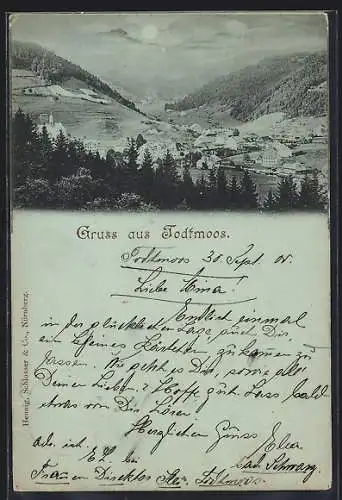 Gruss aus Todtmoos.
Todtmoos 30. Sept.
Liebe
Endlich einmal
in der glücklichen Lage, auch Dir
ein kleines Kärtchen zukommen zu
lassen. Wie geht es Dir, sowie all
Deinen Lieben? Hoffe gut. Lass bald
etwas von Dir hören.
Herzlichen Gruss
ads. ist.
Frauen Direktor Todtmoos.
Hennig, Schlosser & Co., Nürnberg.